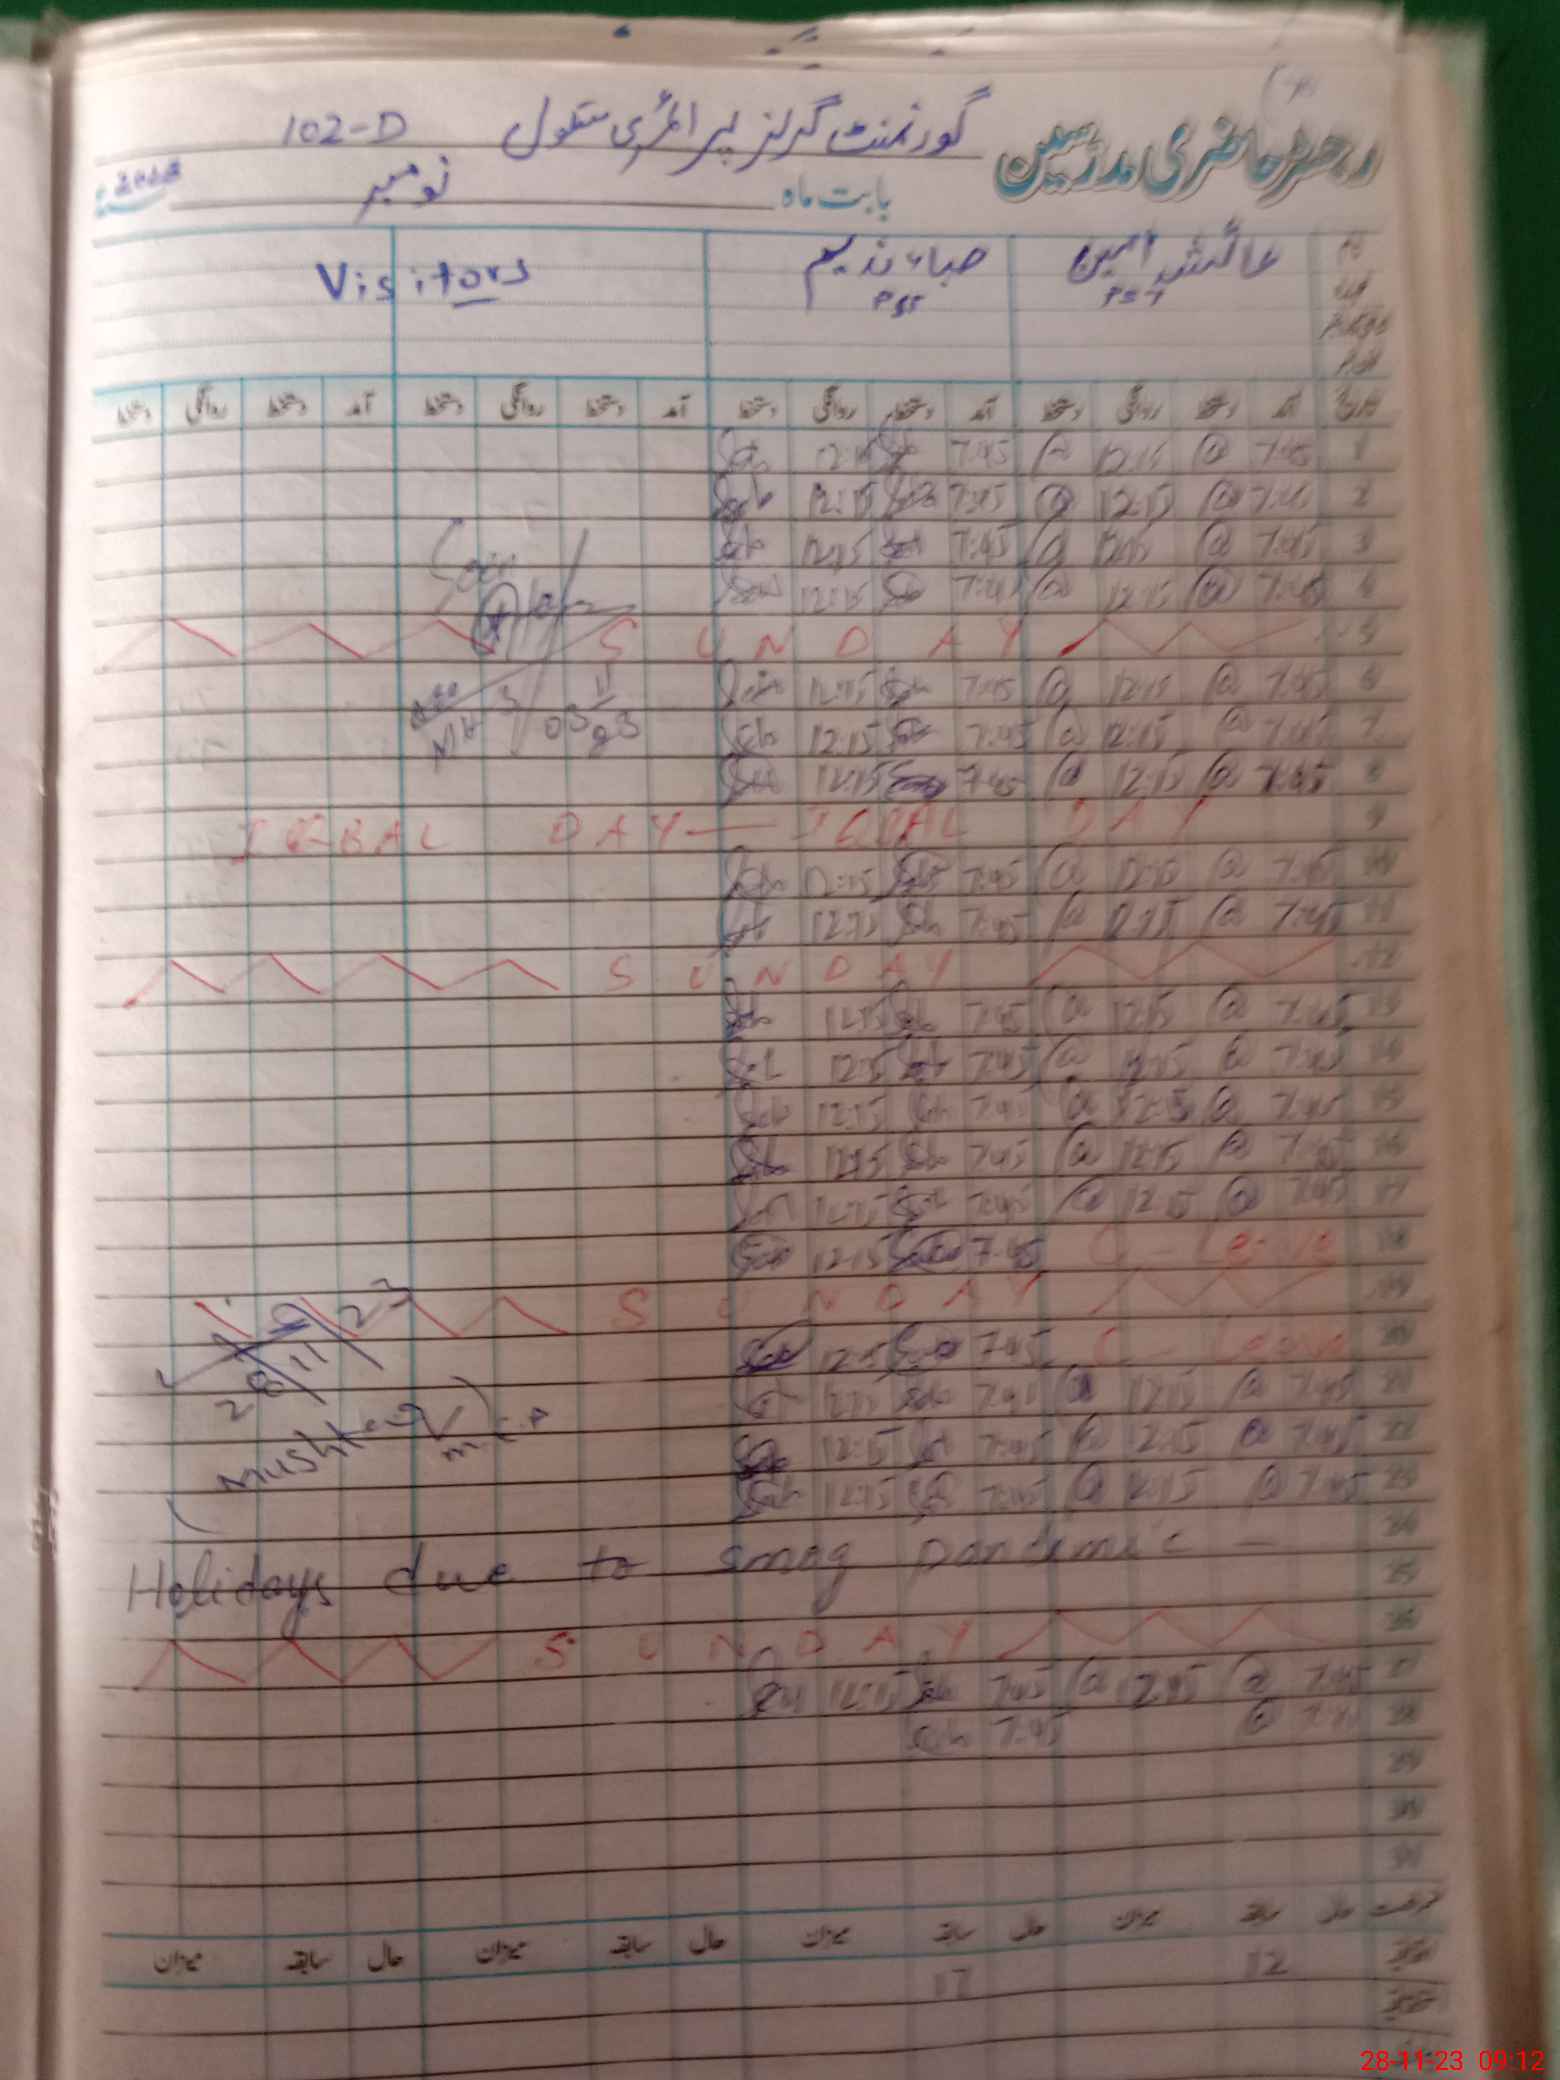 رجسٹر حاضری مدرسین گورنمنٹ گرلز پرائمری سکول 102-D
بابت ماہ نومبر 2023
عائشہ امین صباء ندیم Visitors
PST PST
تاریخ آمد دستخط روانگی دستخط آمد دستخط روانگی دستخط آمد دستخط روانگی دستخط آمد دستخط روانگی دستخط
1 7:45 12:15 7:45 12:15
2 7:45 12:15 7:45 12:15
3 7:45 12:15 7:45 12:15
4 7:45 12:15 7:45 12:15
Seen
5 SUNDAY
6 7:45 12:15 7:45 12:15
7 7:45 12:15 7:45 12:15
03 11 23
8 7:45 12:15 7:45 12:15
9 IQBAL DAY — IQBAL DAY
10 7:45 12:15 7:45 12:15
11 7:45 12:15 7:45 12:15
12 SUNDAY
13 7:45 12:15 7:45 12:15
14 7:45 12:15 7:45 12:15
15 7:45 12:15 7:45 12:15
16 7:45 12:15 7:45 12:15
17 7:45 12:15 7:45 12:15
18 C - Leave 7:45 12:15
19 SUNDAY
20 C - Leave 7:45 12:15
28 11 23
21 7:45 12:15 7:45 12:15
22 7:45 12:15 7:45 12:15
23 7:45 12:15 7:45 12:15
24
Holidays due to smog pandemic —
25
26 SUNDAY
27 7:45 12:15 7:45 12:15
28 7:45 7:45
29
30
31
حال سابقہ میزان حال سابقہ میزان حال سابقہ میزان حال سابقہ میزان
12 17
28-11-23 09:12